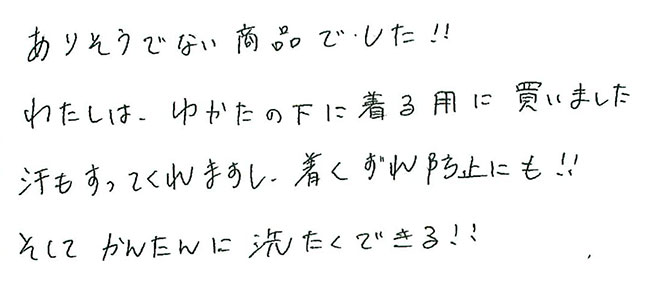 ありそうでない商品でした!!
わたしは、ゆかたの下に着る用に買いました
汗もすってくれますし、着くずれ防止にも!!
そしてかんたんに洗たくできる!!